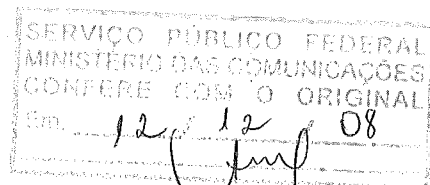 SERVIÇO PÚBLICO FEDERAL
MINISTÉRIO DAS COMUNICAÇÕES
CONFERE COM O ORIGINAL
Em, 12 / 12 / 08